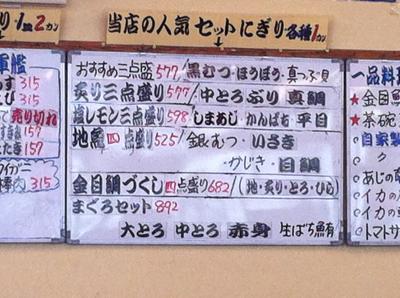 当店の人気セットにぎり各種1カン
2カン
軍艦
315
315
売り切れ
157
157
315
おすすめ三点盛577/黒むつ・ほうぼう・真つぶ貝
炙り三点盛り577/中とろ・ぶり・真鯛
塩レモン三点盛り598/しまあじ・かんぱち・平目
地魚四点盛り525/銀むつ・いさき
・かじき・目鯛
金目鯛づくし四点盛り682/(地・炙り・とろ・ひら)
まぐろセット892
大とろ 中とろ 赤身 生ばち鮪有
一品料理
★金目鯛
★茶碗
自家製
あじの
イカの
イカの
トマトサ